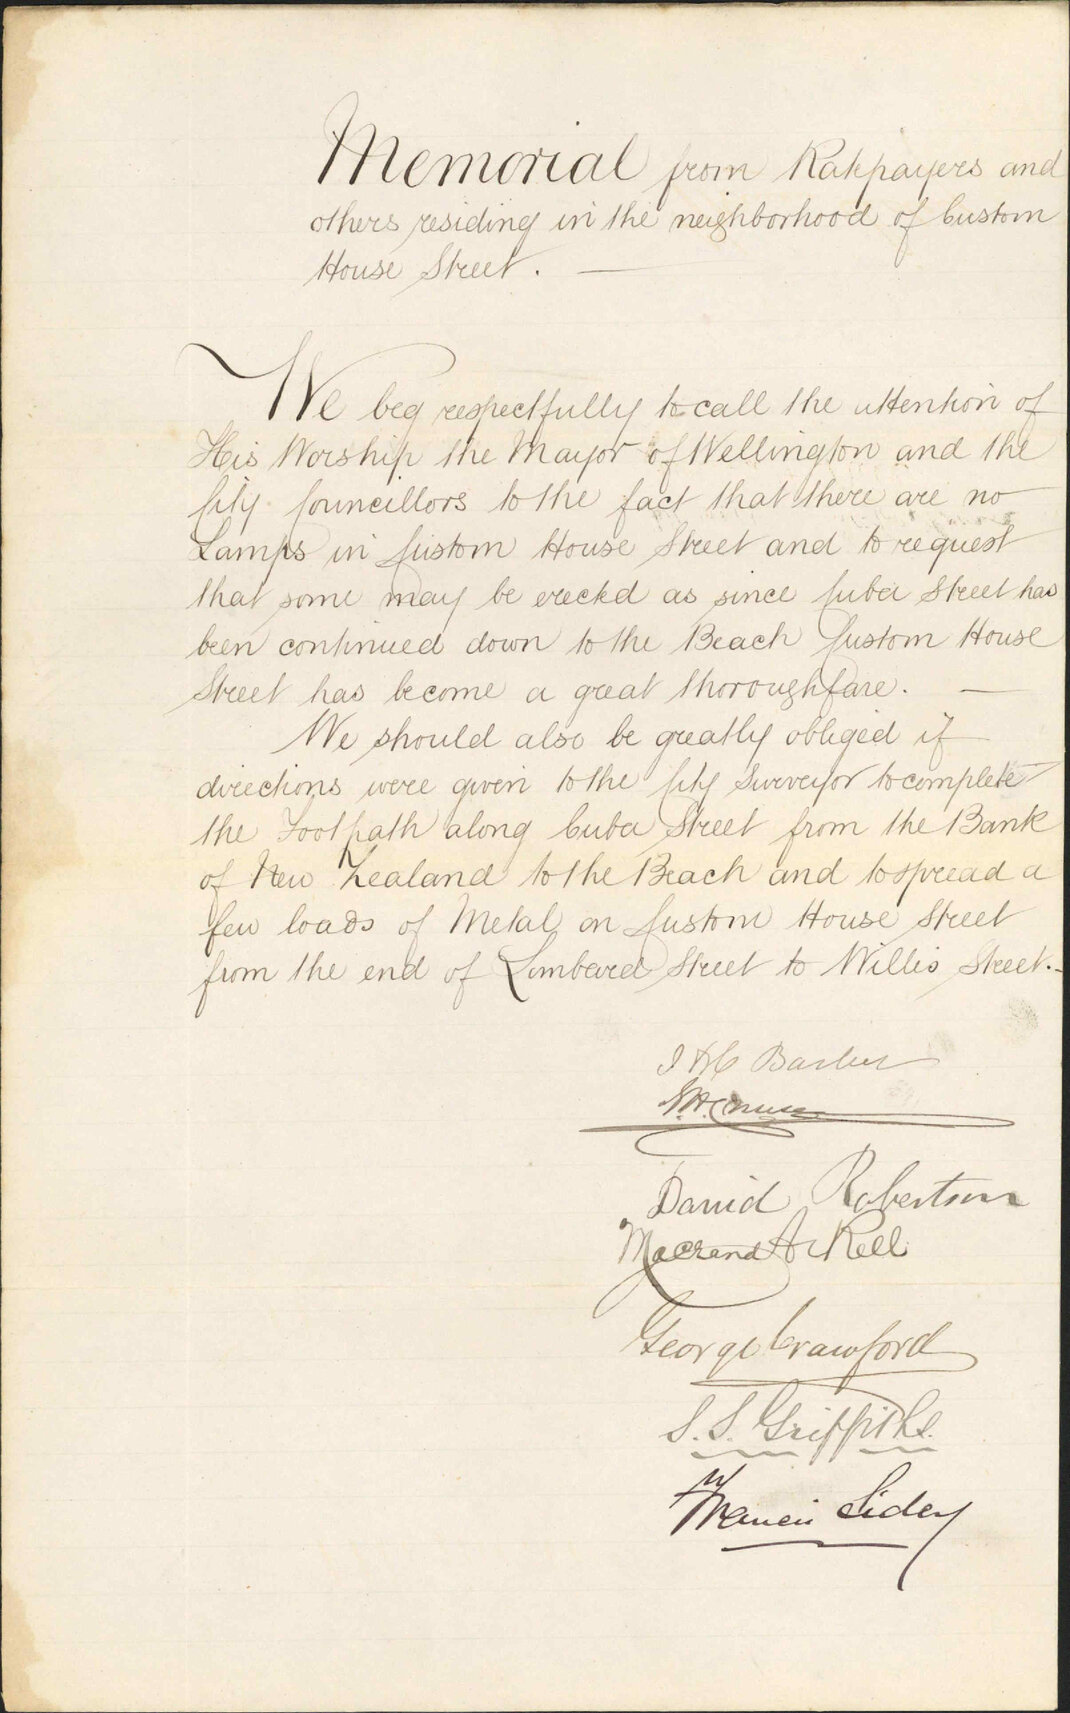 Memorial from Ratepayers and
others residing in the neighborhood of Custom
House Street.
We beg respectfully to call the attention of
His Worship the Mayor of Wellington and the
City Councillors to the fact that there are no
Lamps in Custom House Street and to request
that some may be erected as since Cuba Street has
been continued down to the Beach Custom House
Street has become a great thoroughfare.
We should also be greatly obliged if
directions were given to the City Surveyor to complete
the Footpath along Cuba Street from the Bank
of New Zealand to the Beach and to spread a
few loads of Metal on Custom House Street
from the end of Lombard Street to Willis Street.
David Robertson
George Crawford
S. S. Griffiths.
Francis Sidey